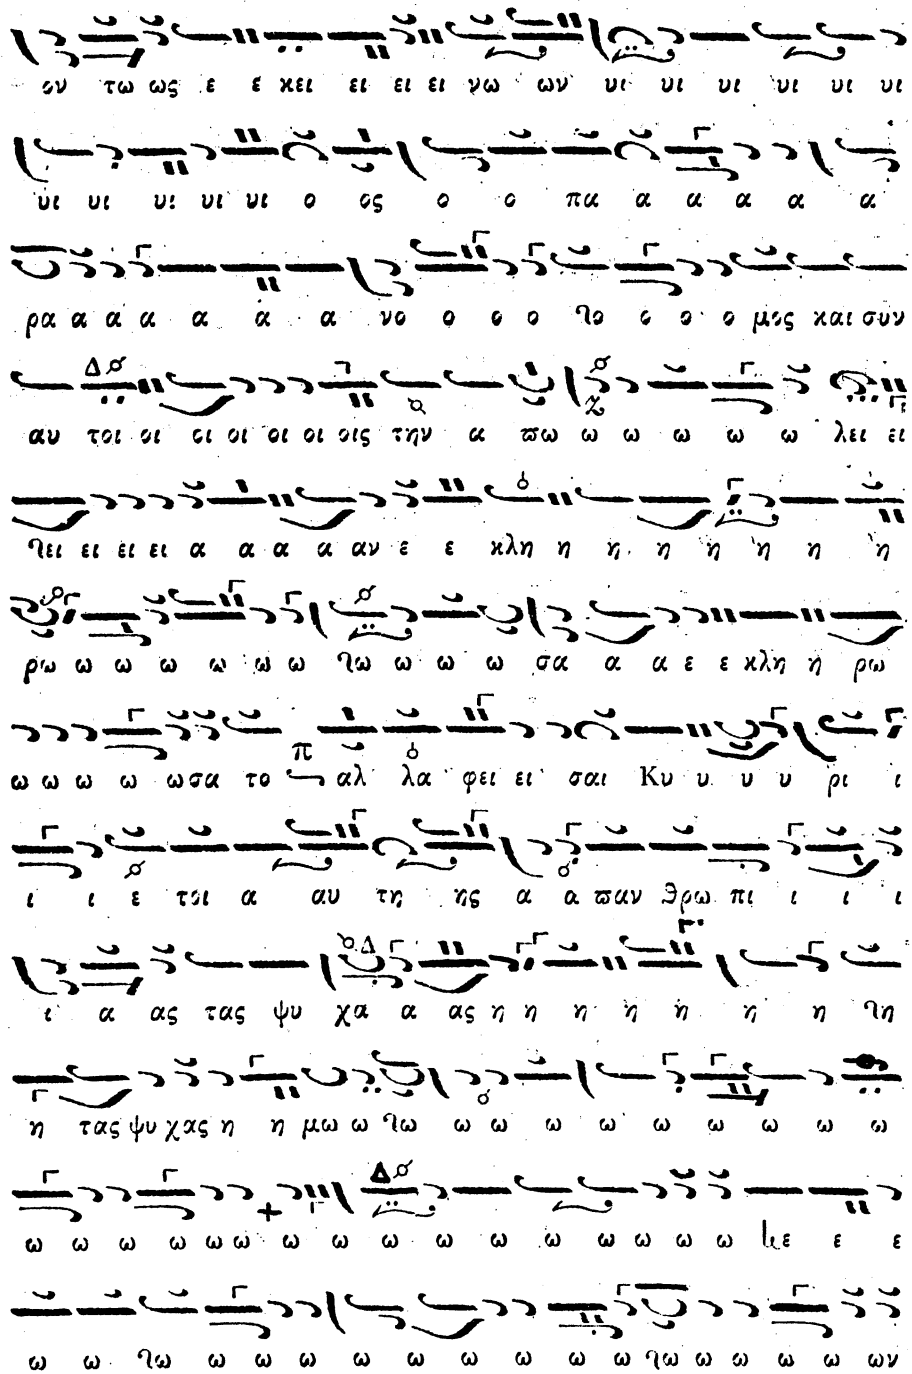 ον τω ως ε ε κει ει ει ει νω ων υι υι υι υι υι υι
υι υι υι υι υι ο ος ο ο πα α α α α α
ρα α α α α α α νο ο ο ο το ο ο ο μος και συν
αυ τοι οι οι οι οι οι οις την α πω ω ω ω ω ω λει ει
τει ει ει ει α α α α αν ε ε κλη η η η η η η η
ρω ω ω ω ω ω ω τω ω ω ω σα α α ε ε κλη η ρω
ω ω ω ω ω σα το αλ λα φει ει σαι Κυ υ υ υ ρι ι
ι ι ε τοι α αυ τη ης α α παν θρω πι ι ι ι
ι α ας τας ψυ χα α ας η η η η η η η τη
η τας ψυ χας η η μω ω τω ω ω ω ω ω ω ω ω ω
ω ω ω ω ω ω ω ω ω ω ω ω ω ω ω ω ε ε
ω ω τω ω ω ω ω ω ω ω ω ω τω ω ω ω ω ων